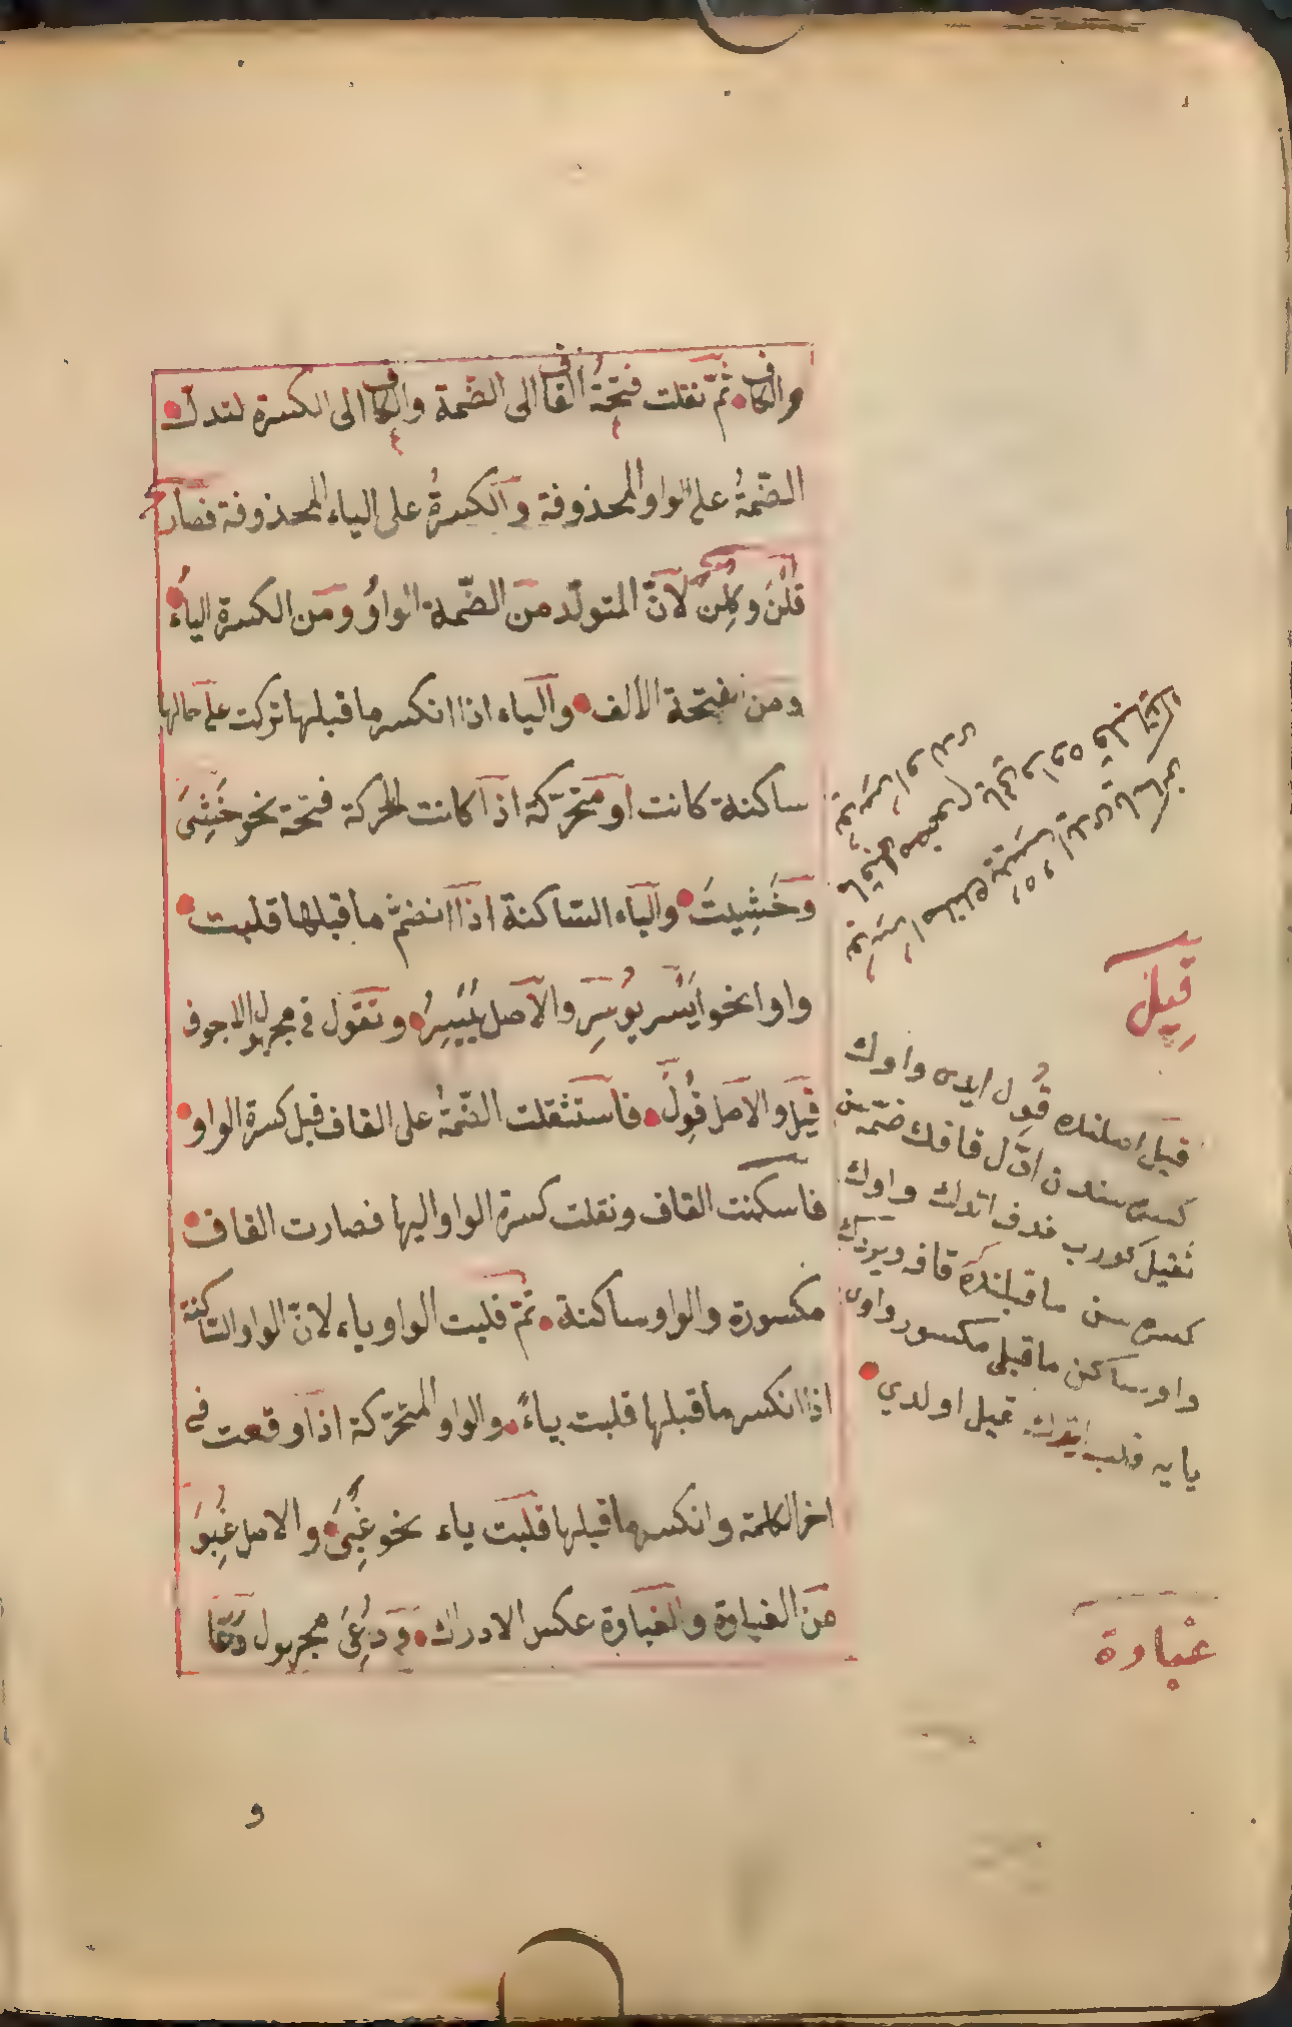 والكاف ثمّ نقلت فتحةُ القاف الى الضّمة والكاف الى الكسرة لتدلّ
الضّمةُ على الواو المحذوفة والكسرةُ على الياء المحذوفة فصار
قُلْنَ وكِلْنَ لانّ المتولّد من الضّمة الواوُ ومن الكسرة الياءُ
ومن الفتحة الالف والياء اذا انكسر ما قبلها تركت على حالها
ساكنة كانت او متحرّكة اذا كانت الحركة فتحة نحو خَشِىَ
وخَشِيتَ والياء السّاكنة اذا انضمّ ما قبلها قلبت
واوا نحو ايسر يوُسِر والاصل يُيْسِرُ وتقول فى مجهول الاجوف
قيل والاصل قُوِلَ فاستثقلت الضّمّةُ على القاف قبل كسرة الواو
فاسكنت القاف ونقلت كسرة الواو اليها فصارت القاف
مكسورة والواو ساكنة ثمّ قلبت الواو ياء لانّ الواو السّاكنة
اذا انكسر ما قبلها قلبت ياءً والواو المتحرّكة اذا وقعت فى
اخر الكلمة وانكسر ما قبلها قلبت ياء نحو غَبِىَ والاصل غَبِوَ
من الغباوة والغباوة عكس الادراك ودُعِىَ مجهول دَعَا
قيلَ
قيل اصلنده قُوِل ايدى واوك
كسره سندن اوّل قافك ضمّه سن
ثقيل كورب حذف اتدك واوك
كسره سن ماقبلنده قافه ويردك
واو ساكن ماقبلى مكسور واوى
يايه قلب ايتدك قيل اولدي
غباوة
و